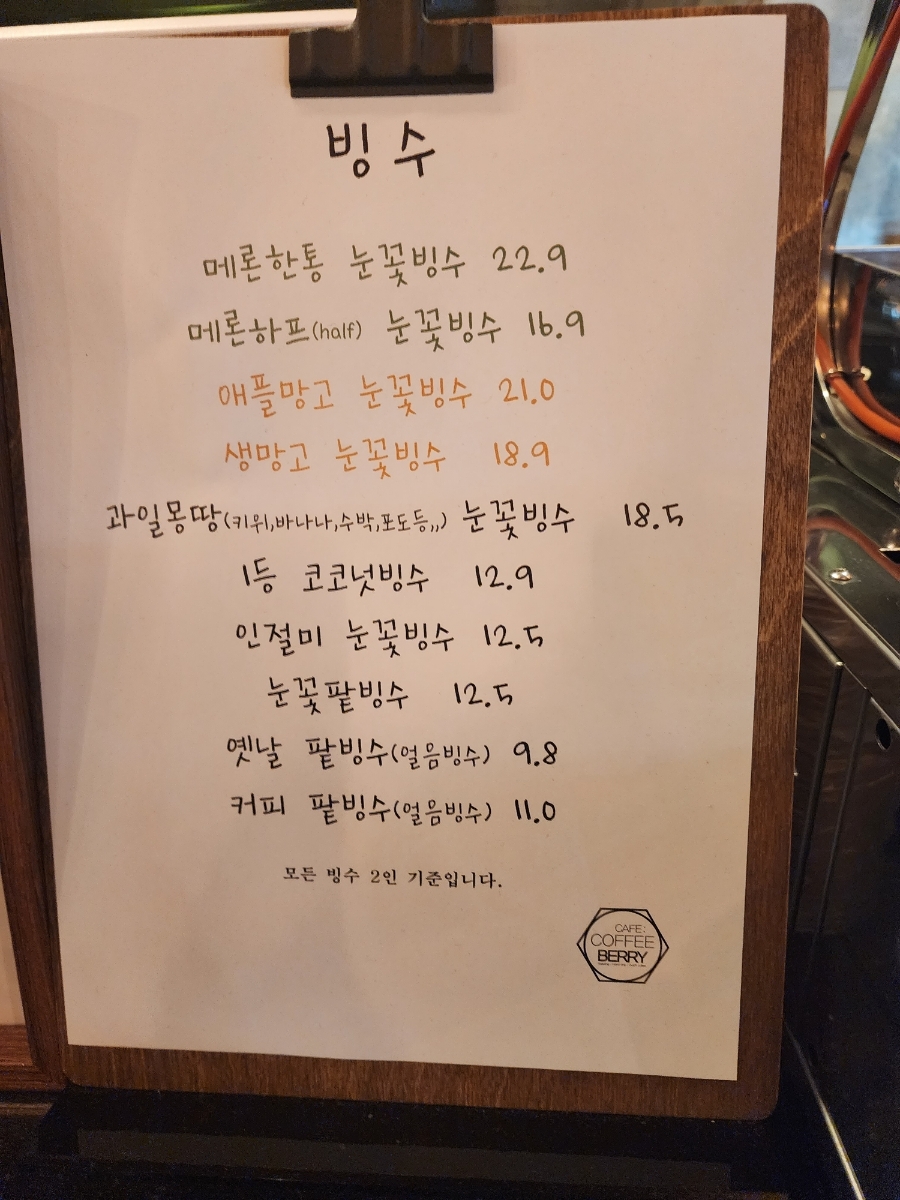 빙수
메론한통 눈꽃빙수 22.9
메론하프(half) 눈꽃빙수 16.9
애플망고 눈꽃빙수 21.0
생망고 눈꽃빙수 18.9
과일몽땅(키위,바나나,수박,포도등,,) 눈꽃빙수 18.5
1등 코코넛빙수 12.9
인절미 눈꽃빙수 12.5
눈꽃팥빙수 12.5
옛날 팥빙수(얼음빙수) 9.8
커피 팥빙수(얼음빙수) 11.0
모든 빙수 2인 기준입니다.
CAFE:
COFFEE
BERRY